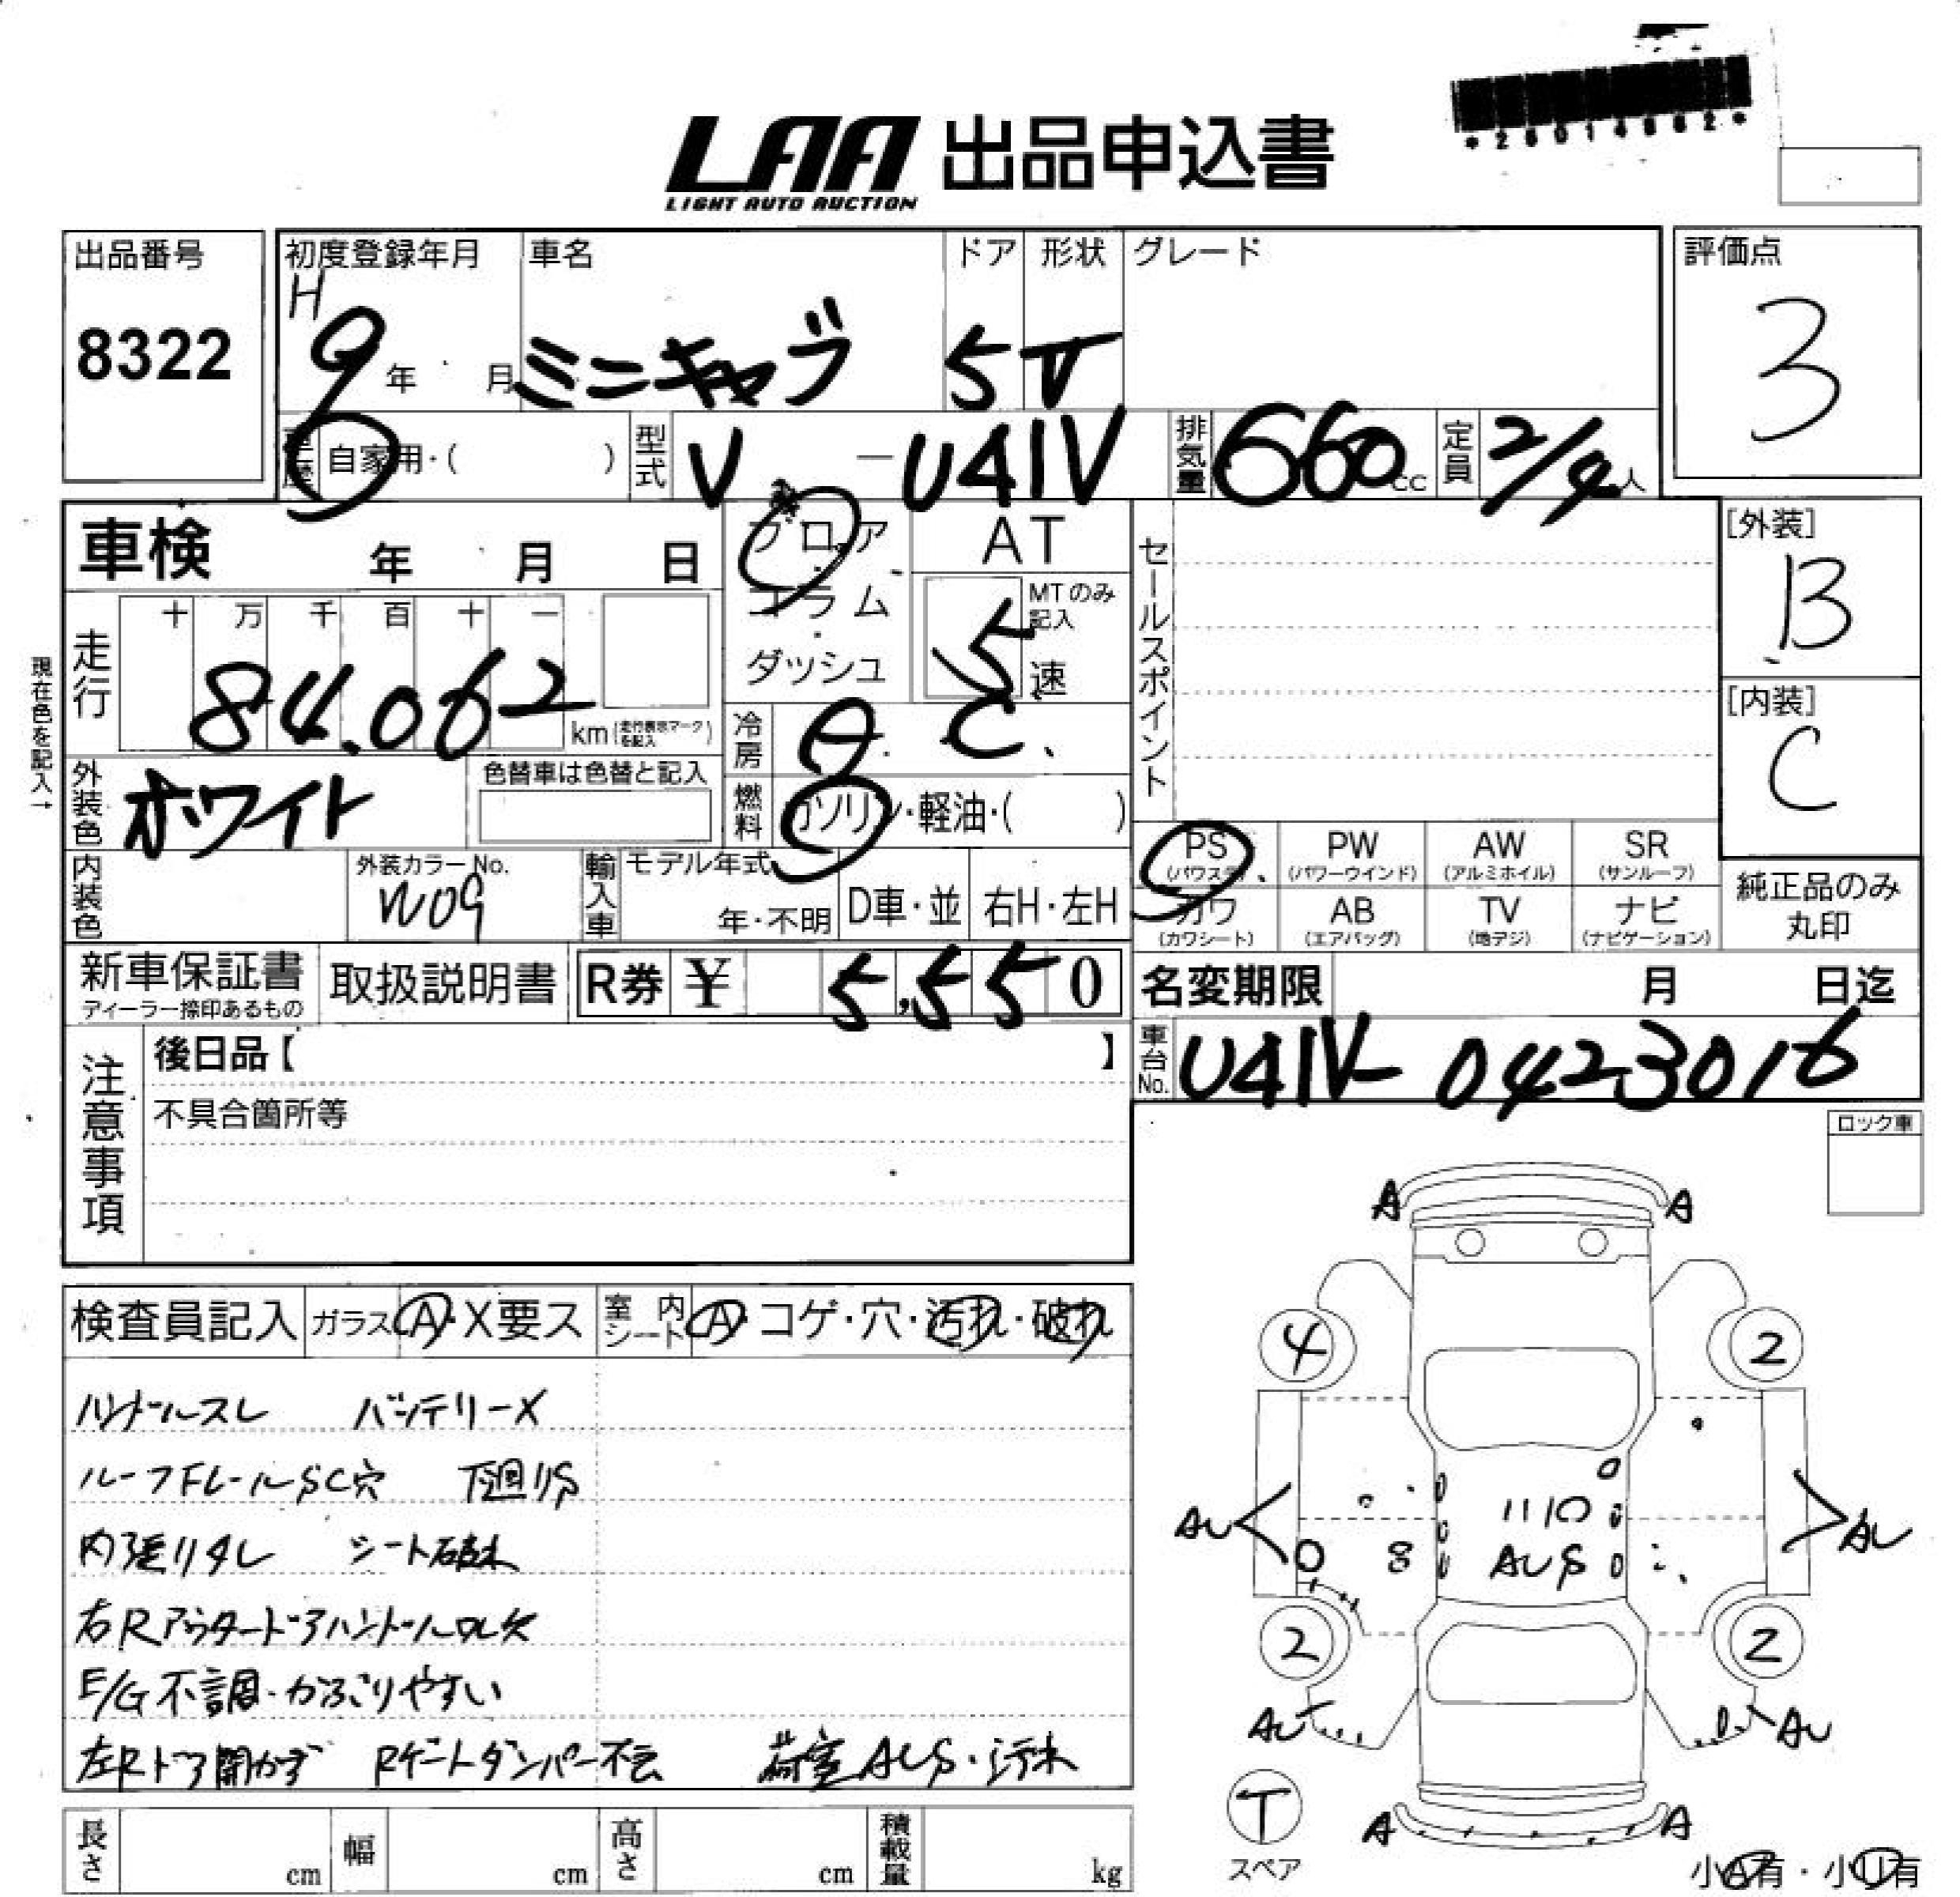 *26014862*
LAA 出品申込書
LIGHT AUTO AUCTION
出品番号
8322
初度登録年月 車名 ドア 形状 グレード
H9年 月 ミニキャブ 5 V
評価点
3
車歴 自家用・( ) 型式 V-U41V 排気量 660cc 定員 2/4人
車検 年 月 日
フロア
コラム
ダッシュ
AT
MTのみ記入
5速
走行 十 万 千 百 十 一
84.062 km (走行表示マークを記入)
現在色を記入→
冷房 A.C.
外装色 ホワイト 色替車は色替と記入
燃料 ガソリン・軽油・( )
セールスポイント
[外装]
B
[内装]
C
内装色 外装カラーNo.
W09
輸入車 モデル年式
年・不明 D車・並 右H・左H
PS (パワステ) PW (パワーウインド) AW (アルミホイル) SR (サンルーフ)
カワ (カワシート) AB (エアバッグ) TV (地デジ) ナビ (ナビゲーション)
純正品のみ
丸印
新車保証書
ディーラー捺印あるもの
取扱説明書 R券 ¥ 5,550
名変期限 月 日迄
車台No. U41V-0423016
注意事項
後日品【 】
不具合箇所等
ロック車
検査員記入 ガラス A・X要ス 室内シート A・コゲ・穴・汚れ・破れ
ハンドルスレ バッテリーX
ルーフFレールSC穴 下廻りS
内張りタレ シート破れ
右Rアウタードアハンドル
E/G不調・かぶりやすい
左Rドア開かず Rゲートダンパー不良 荷室AUS・汚れ
A A
4 2
1110
AUS
AU AU
2 2
AU AU
T
スペア
A A
小A有・小U有
長さ cm 幅 cm 高さ cm 積載量 kg